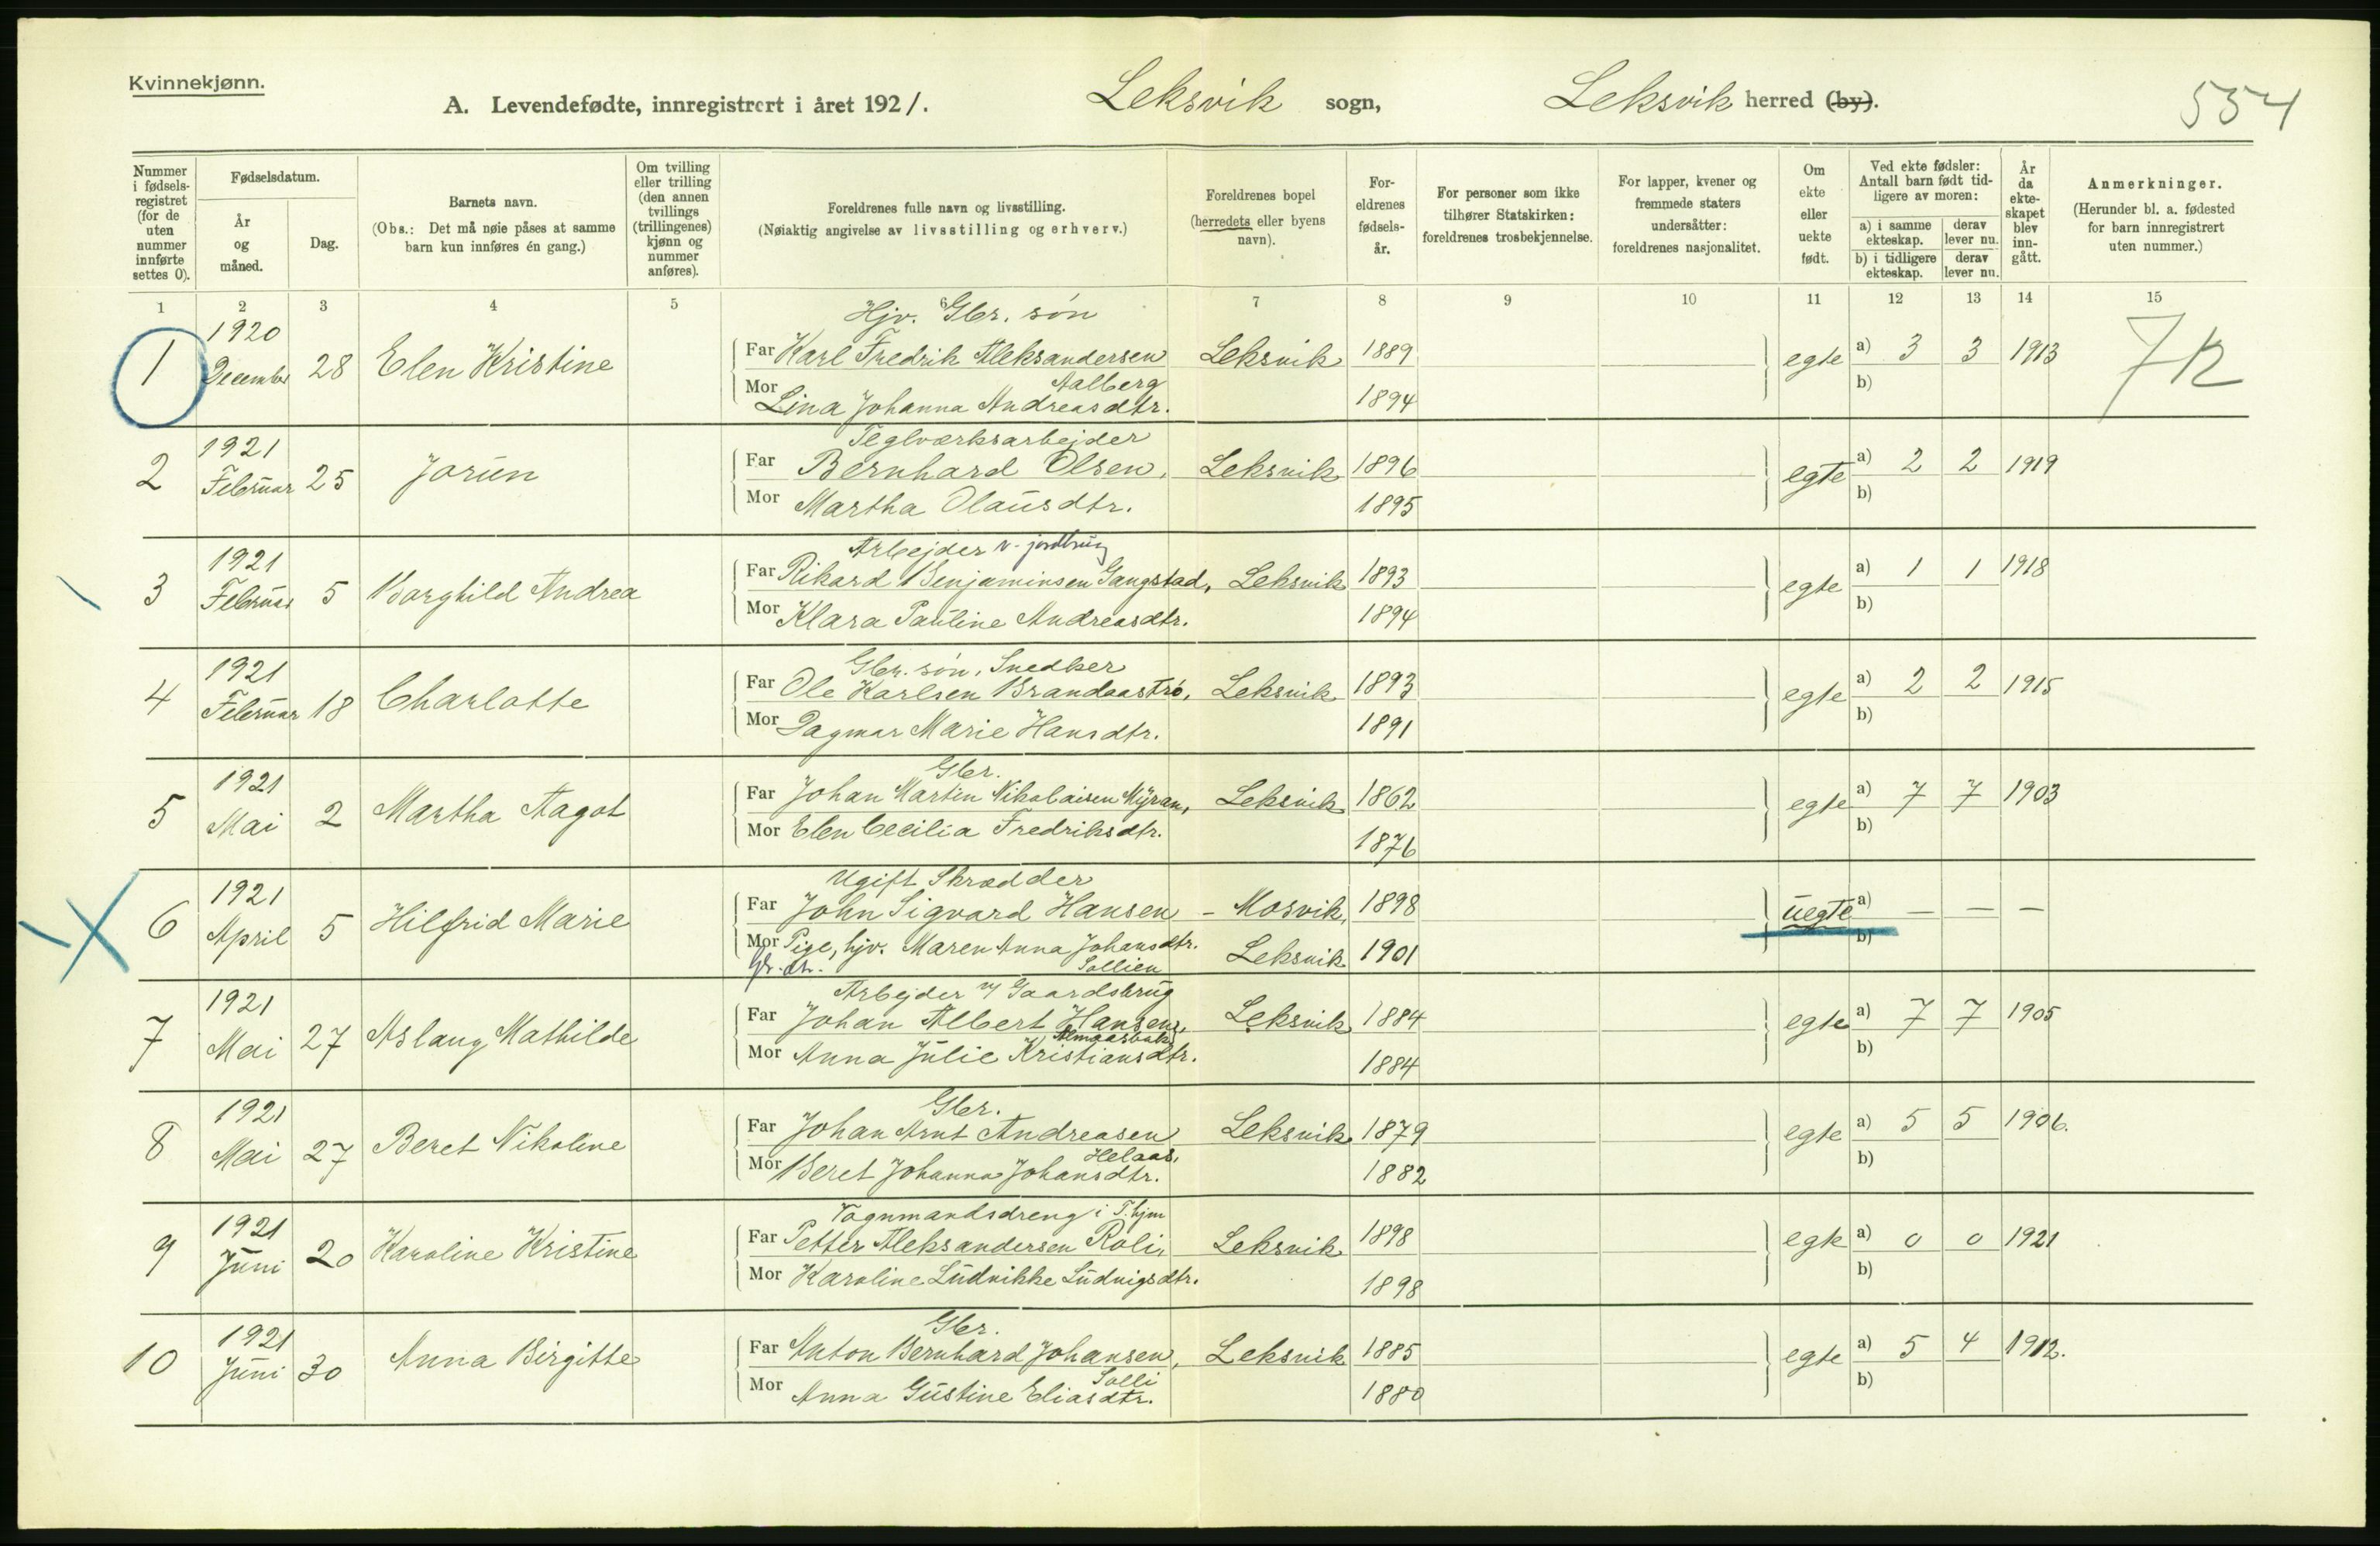 Kvinnekjønn.
A. Levendefødte, innregistrert i året 1921. Leksvik sogn, Leksvik herred (by). 554
Nummer i fødselsregistret (for de uten nummer innførte settes 0).
Fødselsdatum.
År og måned.
Dag.
Barnets navn.
(Obs.: Det må nøie påses at samme barn kun innføres én gang.)
Om tvilling eller trilling (den annen tvillings (trillingenes) kjønn og nummer anføres).
Foreldrenes fulle navn og livsstilling.
(Nøiaktig angivelse av livsstilling og erhverv.)
Foreldrenes bopel (herredets eller byens navn).
Foreldrenes fødselsår.
For personer som ikke tilhører Statskirken: foreldrenes trosbekjennelse.
For lapper, kvener og fremmede staters undersåtter: foreldrenes nasjonalitet.
Om ekte eller uekte født.
Ved ekte fødsler: Antall barn født tidligere av moren:
a) i samme ekteskap. derav lever nu.
b) i tidligere ekteskap. derav lever nu.
År da ekteskapet blev inngått.
Anmerkninger.
(Herunder bl. a. fødested for barn innregistrert uten nummer.)
1 2 3 4 5 6 7 8 9 10 11 12 13 14 15
Hjv. Gbr. søn
1 1920 December 28 Elen Kristine Far Karl Fredrik Aleksandersen Leksvik 1889 egte a) 3 3 1913
Aalberg
Mor Lina Johanna Andreasdtr. 1894 b)
Teglværksarbejder
2 1921 Februar 25 Jorun Far Bernhard Olsen, Leksvik 1896 egte a) 2 2 1919
Mor Martha Olausdtr. 1895 b)
Arbejder v. jordbrug
3 1921 Februar 5 Borghild Andrea Far Rikard Benjaminsen Gangstad, Leksvik 1893 egte a) 1 1 1918
Mor Klara Pauline Andreasdtr. 1894 b)
Gbr. søn, Snedker
4 1921 Februar 18 Charlotte Far Ole Karlsen Brandaastrø, Leksvik 1893 egte a) 2 2 1915
Mor Dagmar Marie Hansdtr. 1891 b)
Gbr.
5 1921 Mai 2 Martha Aagot Far Johan Martin Nikolaisen Myran, Leksvik 1862 egte a) 7 7 1903
Mor Elen Cecilia Fredriksdtr. 1876 b)
Ugift Skrædder
6 1921 April 5 Hilfrid Marie Far John Sigvard Hansen – Mosvik, 1898 uegte a) — — —
Mor Pige, hjv. Maren Anna Johansdtr. Leksvik 1901 b)
Sollien
Arbejder v/ Gaardsbrug
7 1921 Mai 27 Aslaug Mathilde Far Johan Albert Hansen, Leksvik 1884 egte a) 7 7 1905
Mor Anna Julie Kristiansdtr. 1884 b)
Gbr.
8 1921 Mai 27 Beret Nikoline Far Johan Arnt Andreasen Leksvik 1879 egte a) 5 5 1906.
Helaas,
Mor Beret Johanna Johansdtr. 1882 b)
Vognmandsdreng i T.hjm
9 1921 Juni 20 Karoline Kristine Far Petter Aleksandersen Roli, Leksvik 1898 egte a) 0 0 1921
Mor Karoline Ludvikke Ludvigsdtr. 1898 b)
Gbr.
10 1921 Juni 30 Anna Birgitte Far Anton Bernhard Johansen, Leksvik 1885 egte a) 5 4 1912.
Solli
Mor Anna Gustine Eliasdtr. 1880 b)